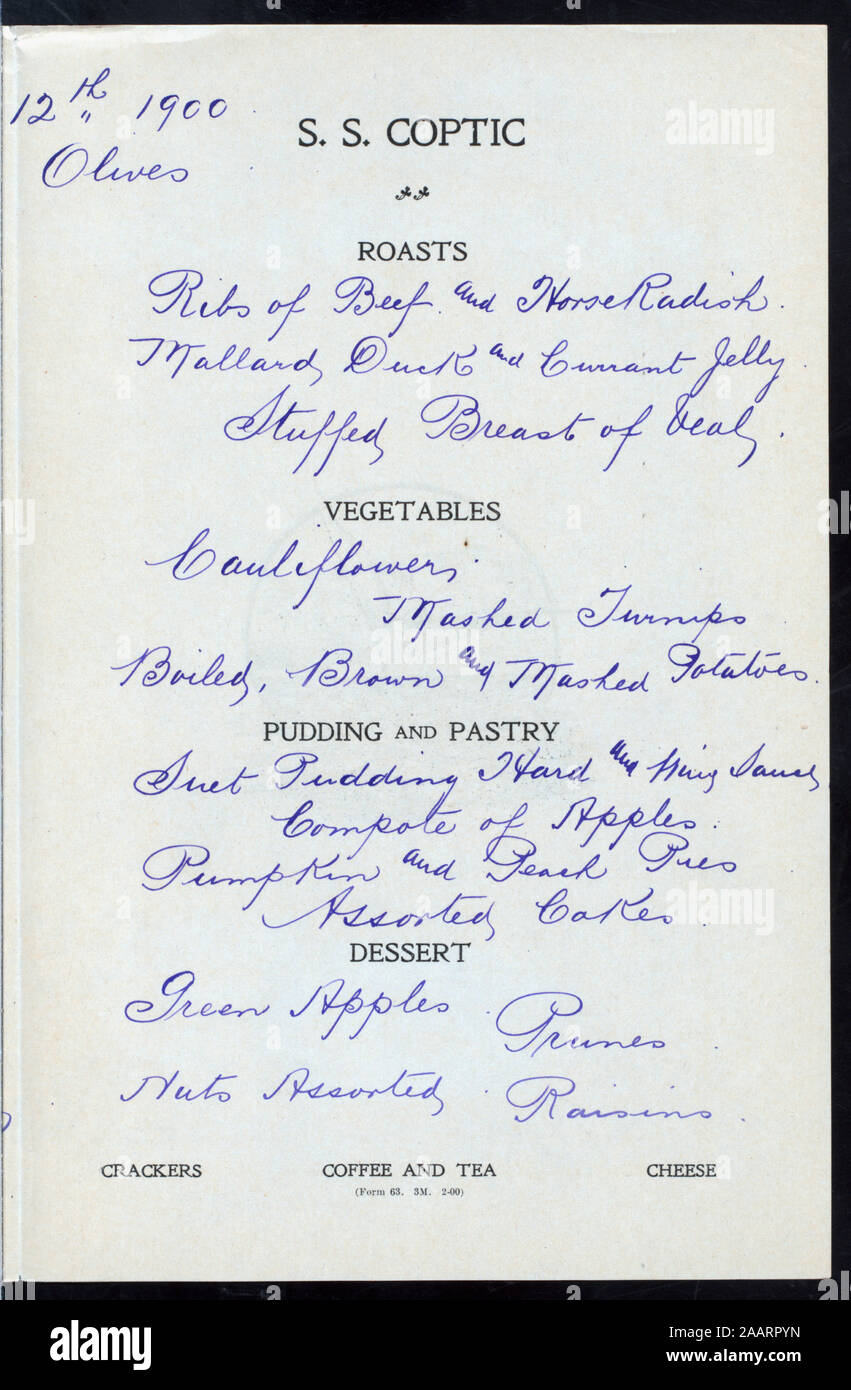 12th 1900
Olives
S. S. COPTIC
ROASTS
Ribs of Beef and Horse Radish.
Mallard Duck and Currant Jelly.
Stuffed Breast of Veal.
VEGETABLES
Cauliflower.
Mashed Turnips
Boiled, Brown and Mashed Potatoes.
PUDDING AND PASTRY
Suet Pudding Hard and Wine Sauce
Compote of Apples.
Pumpkin and Peach Pies
Assorted Cakes.
DESSERT
Green Apples.
Prunes.
Nuts Assorted.
Raisins.
CRACKERS COFFEE AND TEA CHEESE
(Form 63. 3M. 2-00)
alamy
Image ID: 2AARPYN
www.alamy.com